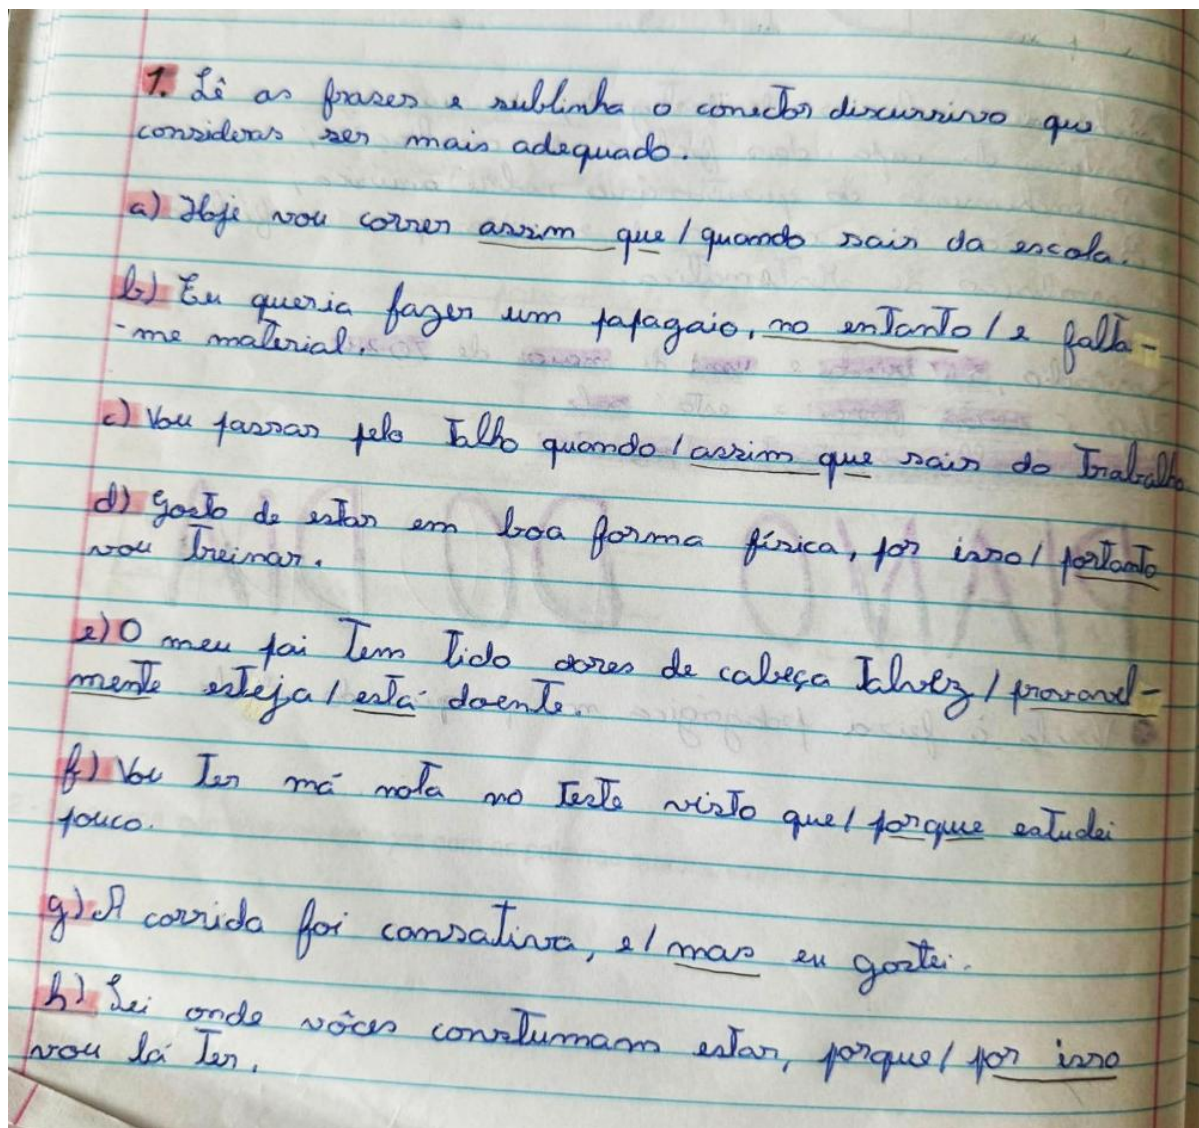 1. Lê as frases e sublinha o conector discursivo que
consideras ser mais adequado.
a) Hoje vou correr assim que / quando sair da escola.
b) Eu queria fazer um papagaio, no entanto / e falta-
-me material.
c) Vou passar pelo talho quando / assim que sair do trabalho
d) Gosto de estar em boa forma física, por isso / portanto
vou treinar.
e) O meu pai tem tido dores de cabeça talvez / provavel-
mente esteja / está doente.
f) Vou ter má nota no teste visto que / porque estudei
pouco.
g) A corrida foi cansativa, e / mas eu gostei.
h) Sei onde vôces constumam estar, porque / por isso
vou lá ter.